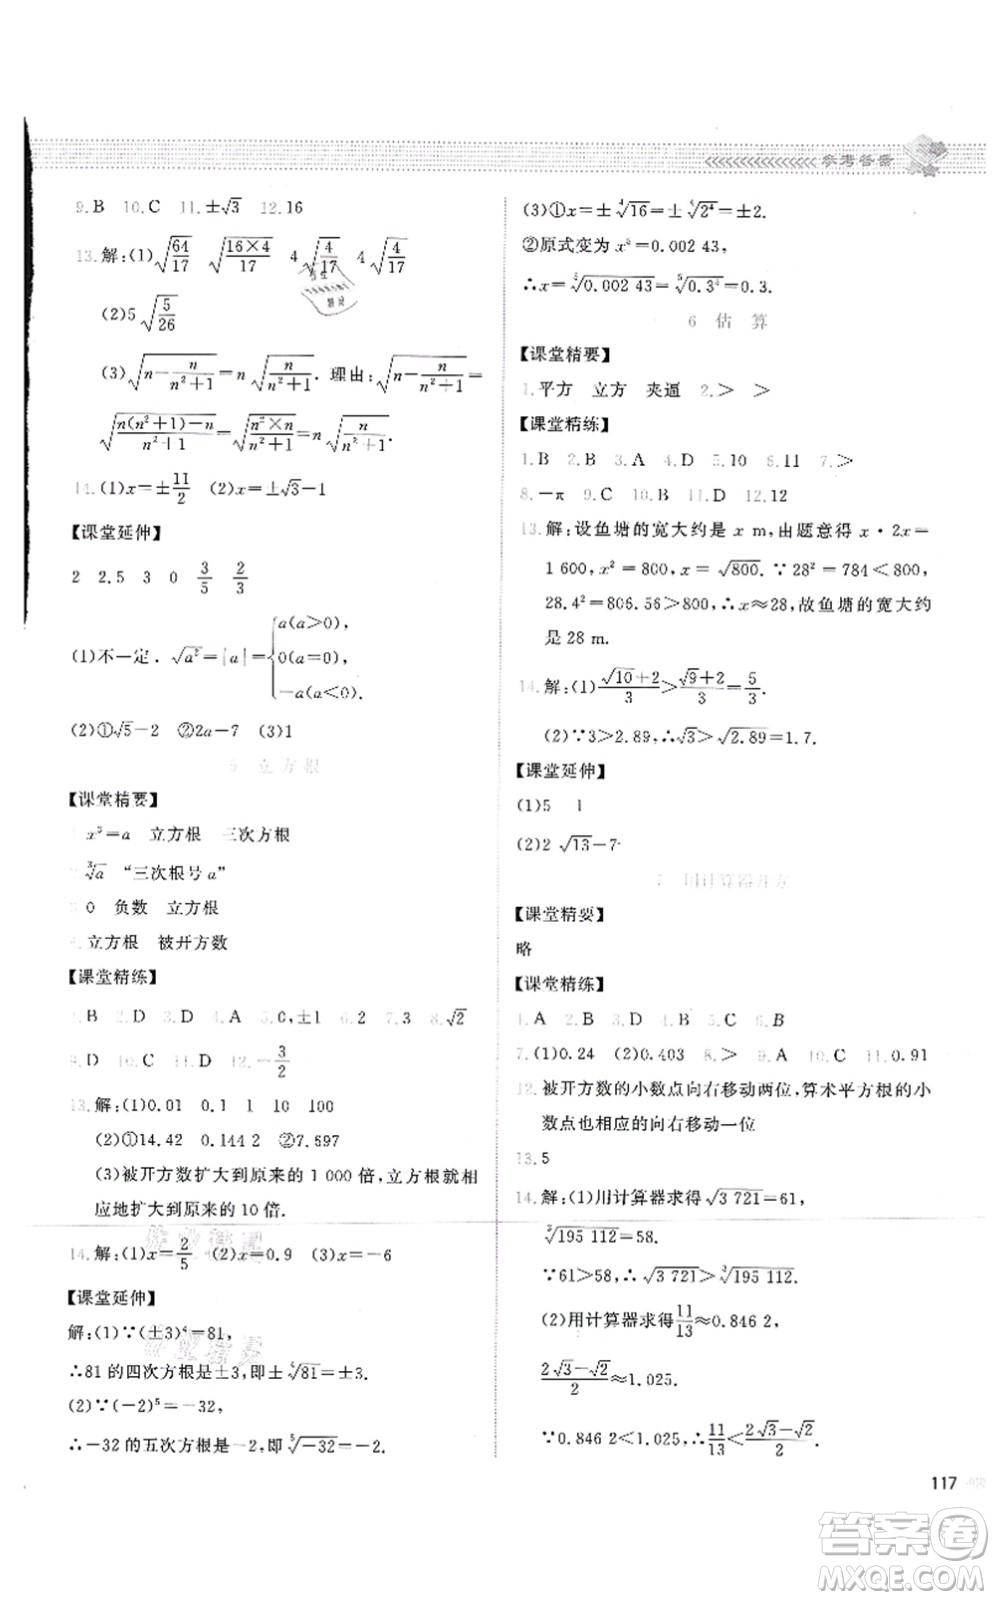 参考答案
9.B 10.C 11.±√3 12.16
13.解:(1)√(64/17) √((16×4)/17) 4√(4/17) 4√(4/17)
(2)5√(5/26)
(3)√(n-n/(n²+1))=n√(n/(n²+1)). 理由:√(n-n/(n²+1))=
√((n(n²+1)-n)/(n²+1))=√((n²×n)/(n²+1))=n√(n/(n²+1)).
14.(1)x=±11/2 (2)x=±√3-1
【课堂延伸】
2 2.5 3 0 3/5 2/3
(1)不一定. √a²=|a|={a(a>0),
0(a=0),
-a(a<0).
(2)①√5-2 ②2a-7 (3)1
5 立方根
【课堂精要】
x³=a 立方根 三次方根
∛a “三次根号a”
0 负数 立方根
立方根 被开方数
【课堂精练】
1.B 2.D 3.D 4.A 5.0,±1 6.2 7.3 8.√2
9.D 10.C 11.D 12.-3/2
13.解:(1)0.01 0.1 1 10 100
(2)①14.42 0.144 2 ②7.697
(3)被开方数扩大到原来的1 000倍,立方根就相
应地扩大到原来的10倍.
14.解:(1)x=2/5 (2)x=0.9 (3)x=-6
【课堂延伸】
解:(1)∵(±3)⁴=81,
∴81的四次方根是±3,即±∜81=±3.
(2)∵(-2)⁵=-32,
∴-32的五次方根是-2,即⁵√-32=-2.
(3)①x=±∜16=±∜2⁴=±2.
②原式变为x⁵=0.002 43,
∴x=⁵√0.002 43=⁵√0.3⁵=0.3.
6 估算
【课堂精要】
1.平方 立方 夹逼 2.> >
【课堂精练】
1.B 2.B 3.A 4.D 5.10 6.11 7.>
8.-π 9.C 10.B 11.D 12.12
13.解:设鱼塘的宽大约是x m,由题意得x·2x=
1 600,x²=800,x=√800.∵28²=784<800,
28.4²=806.56>800,∴x≈28,故鱼塘的宽大约
是28 m.
14.解:(1)(√10+2)/3>(√9+2)/3=5/3.
(2)∵3>2.89,∴√3>√2.89=1.7.
【课堂延伸】
(1)5 1
(2)2 √13-7
7 用计算器开方
【课堂精要】
略
【课堂精练】
1.A 2.B 3.B 4.A 5.C 6.B
7.(1)0.24 (2)0.403 8.> 9.A 10.C 11.0.91
12.被开方数的小数点向右移动两位,算术平方根的小
数点也相应的向右移动一位
13.5
14.解:(1)用计算器求得√3 721=61,
∛195 112=58.
∵61>58,∴√3 721>∛195 112.
(2)用计算器求得11/13≈0.846 2,
(2√3-√2)/2≈1.025.
∵0.846 2<1.025,∴11/13<(2√3-√2)/2.
117
答案卷
MXQE.COM